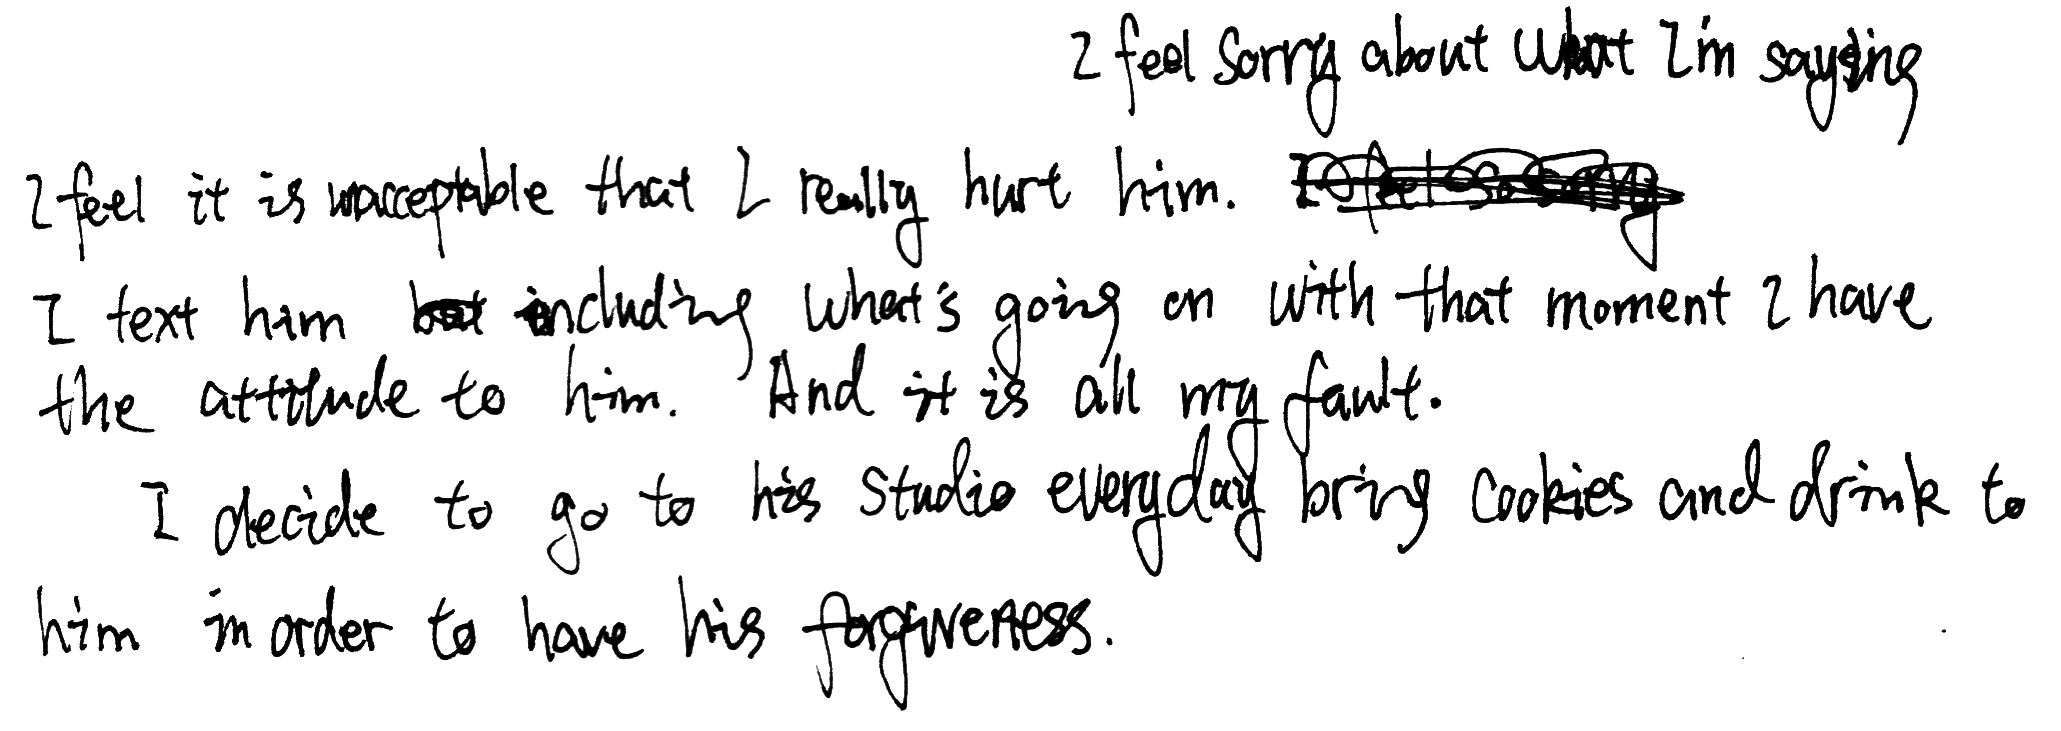 I feel sorry about what I'm saying
I feel it is unacceptable that I really hurt him.
I text him including what's going on with that moment I have
the attitude to him. And it is all my fault.
I decide to go to his studio everyday bring cookies and drink to
him in order to have his forgiveness.